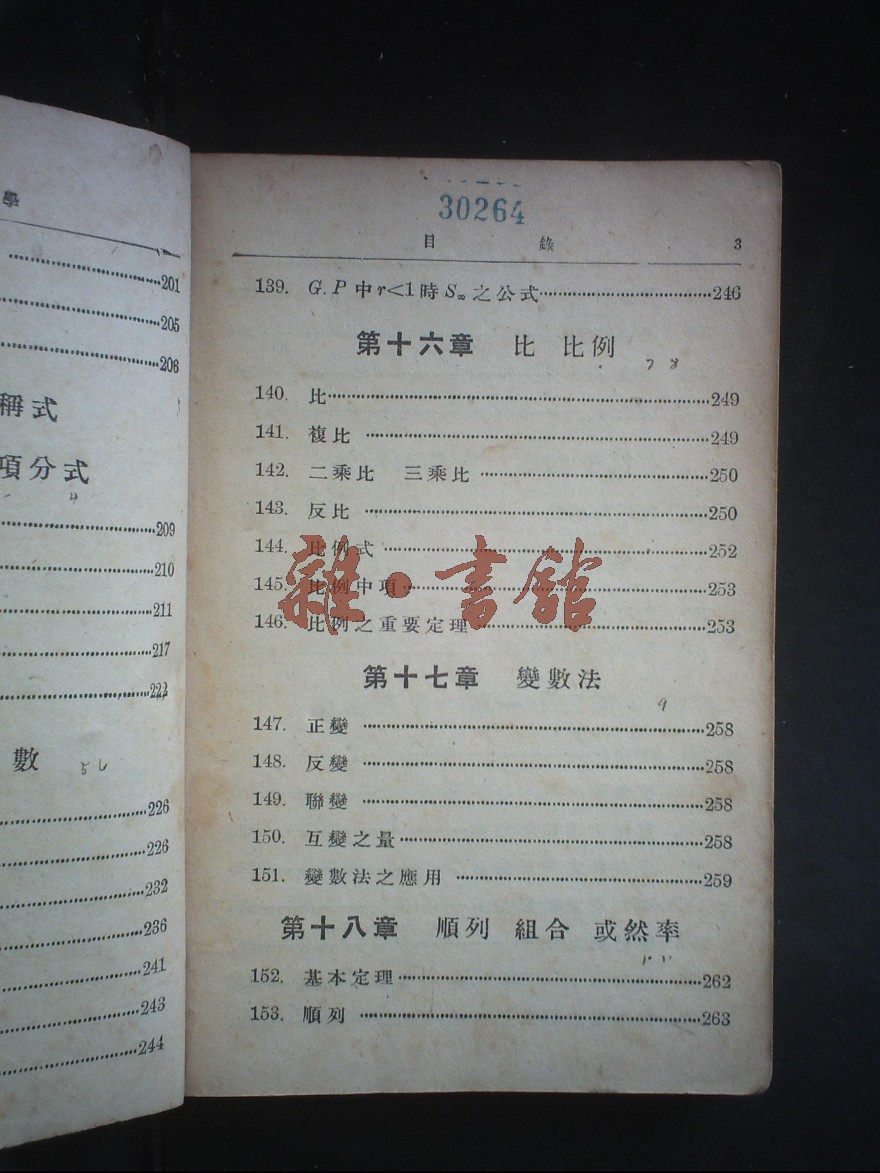 學
201
205
206
稱式
項分式
4
209
210
211
217
222
數
5 6
226
226
232
236
241
243
244
30264
目 錄 3
139. G.P 中 r<1 時 S∞ 之公式 246
第十六章 比 比例
7 8
140. 比 249
141. 複比 249
142. 二乘比 三乘比 250
143. 反比 250
144. 比例式 252
145. 比例中項 253
146. 比例之重要定理 253
雜·書館
第十七章 變數法
9
147. 正變 258
148. 反變 258
149. 聯變 258
150. 互變之量 258
151. 變數法之應用 259
第十八章 順列 組合 或然率
152. 基本定理 262
153. 順列 263